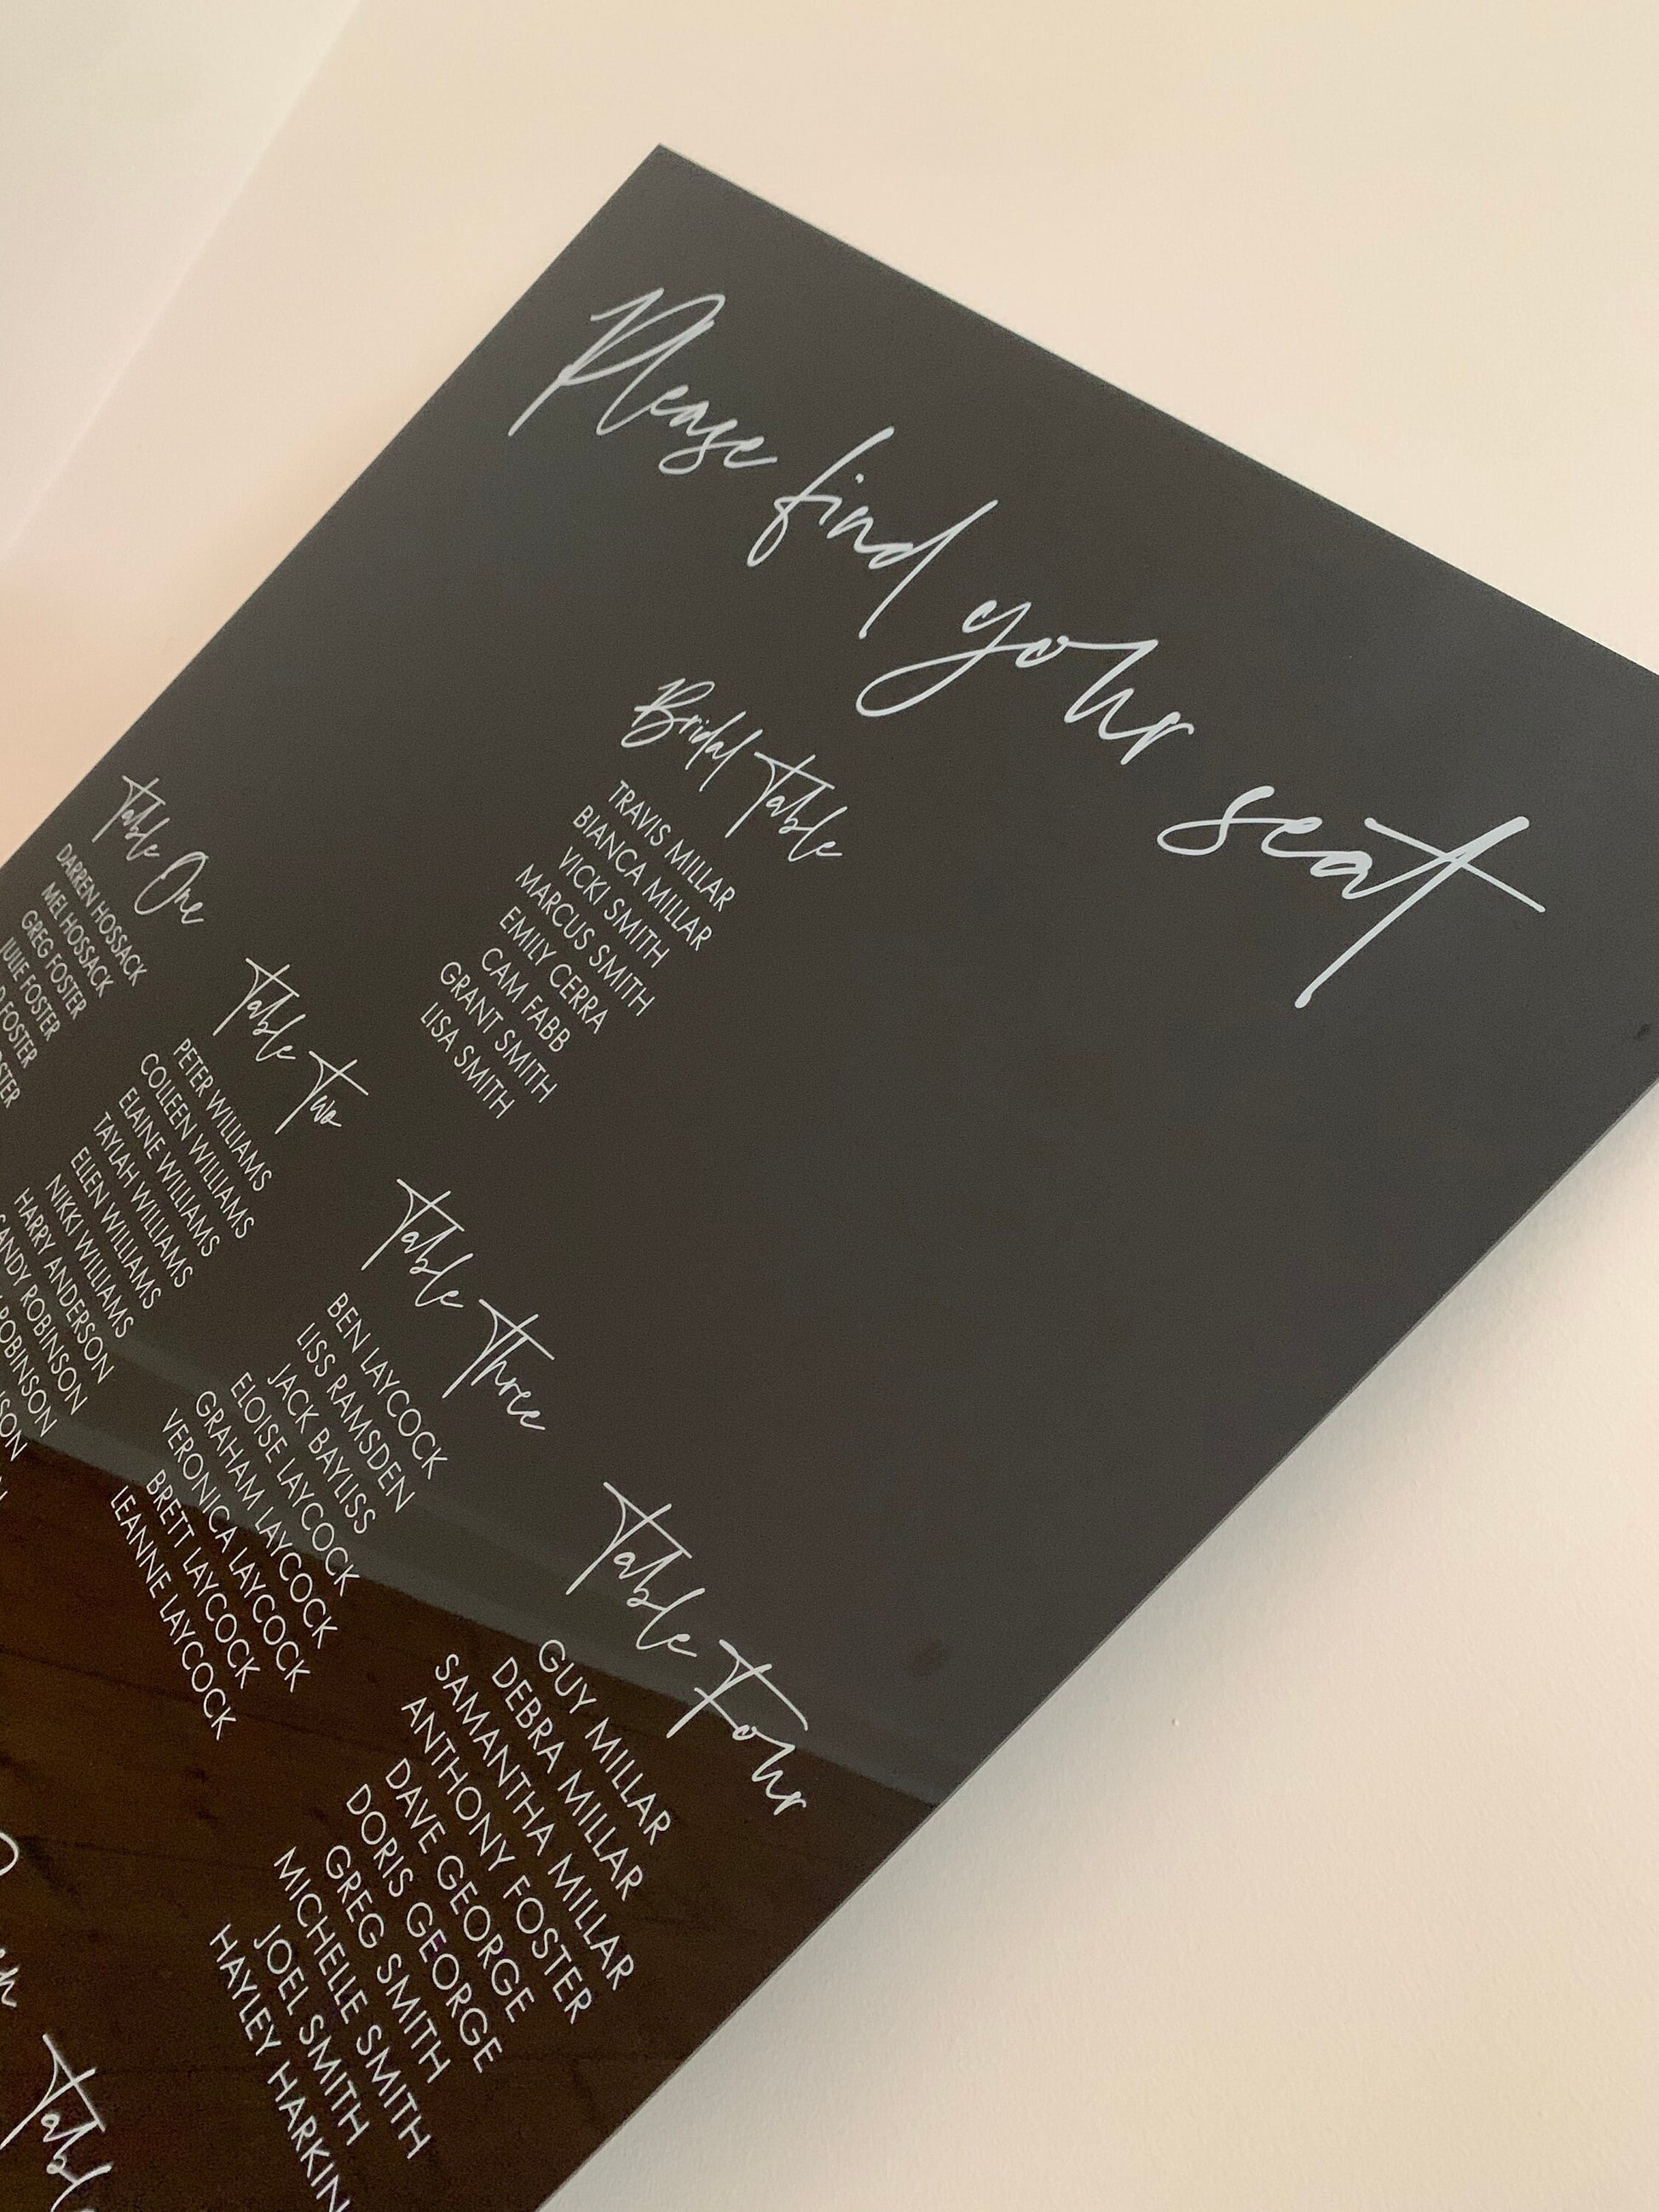 Please find your seat
Bridal Table
TRAVIS MILLAR
BIANCA MILLAR
VICKI SMITH
MARCUS SMITH
EMILY CERRA
CAM FABB
GRANT SMITH
LISA SMITH
Table One
DARREN HOSSACK
MEL HOSSACK
GREG FOSTER
JULIE FOSTER
FOSTER
Table Two
PETER WILLIAMS
COLLEEN WILLIAMS
ELAINE WILLIAMS
TAYLAH WILLIAMS
ELLEN WILLIAMS
NIKKI WILLIAMS
HARRY ANDERSON
ROBINSON
ROBINSON
Table Three
BEN LAYCOCK
LISS RAMSDEN
JACK BAYLISS
ELOISE LAYCOCK
GRAHAM LAYCOCK
VERONICA LAYCOCK
BRETT LAYCOCK
LEANNE LAYCOCK
Table Four
GUY MILLAR
DEBRA MILLAR
SAMANTHA MILLAR
ANTHONY FOSTER
DAVE GEORGE
DORIS GEORGE
GREG SMITH
MICHELLE SMITH
JOEL SMITH
HAYLEY HARKIN